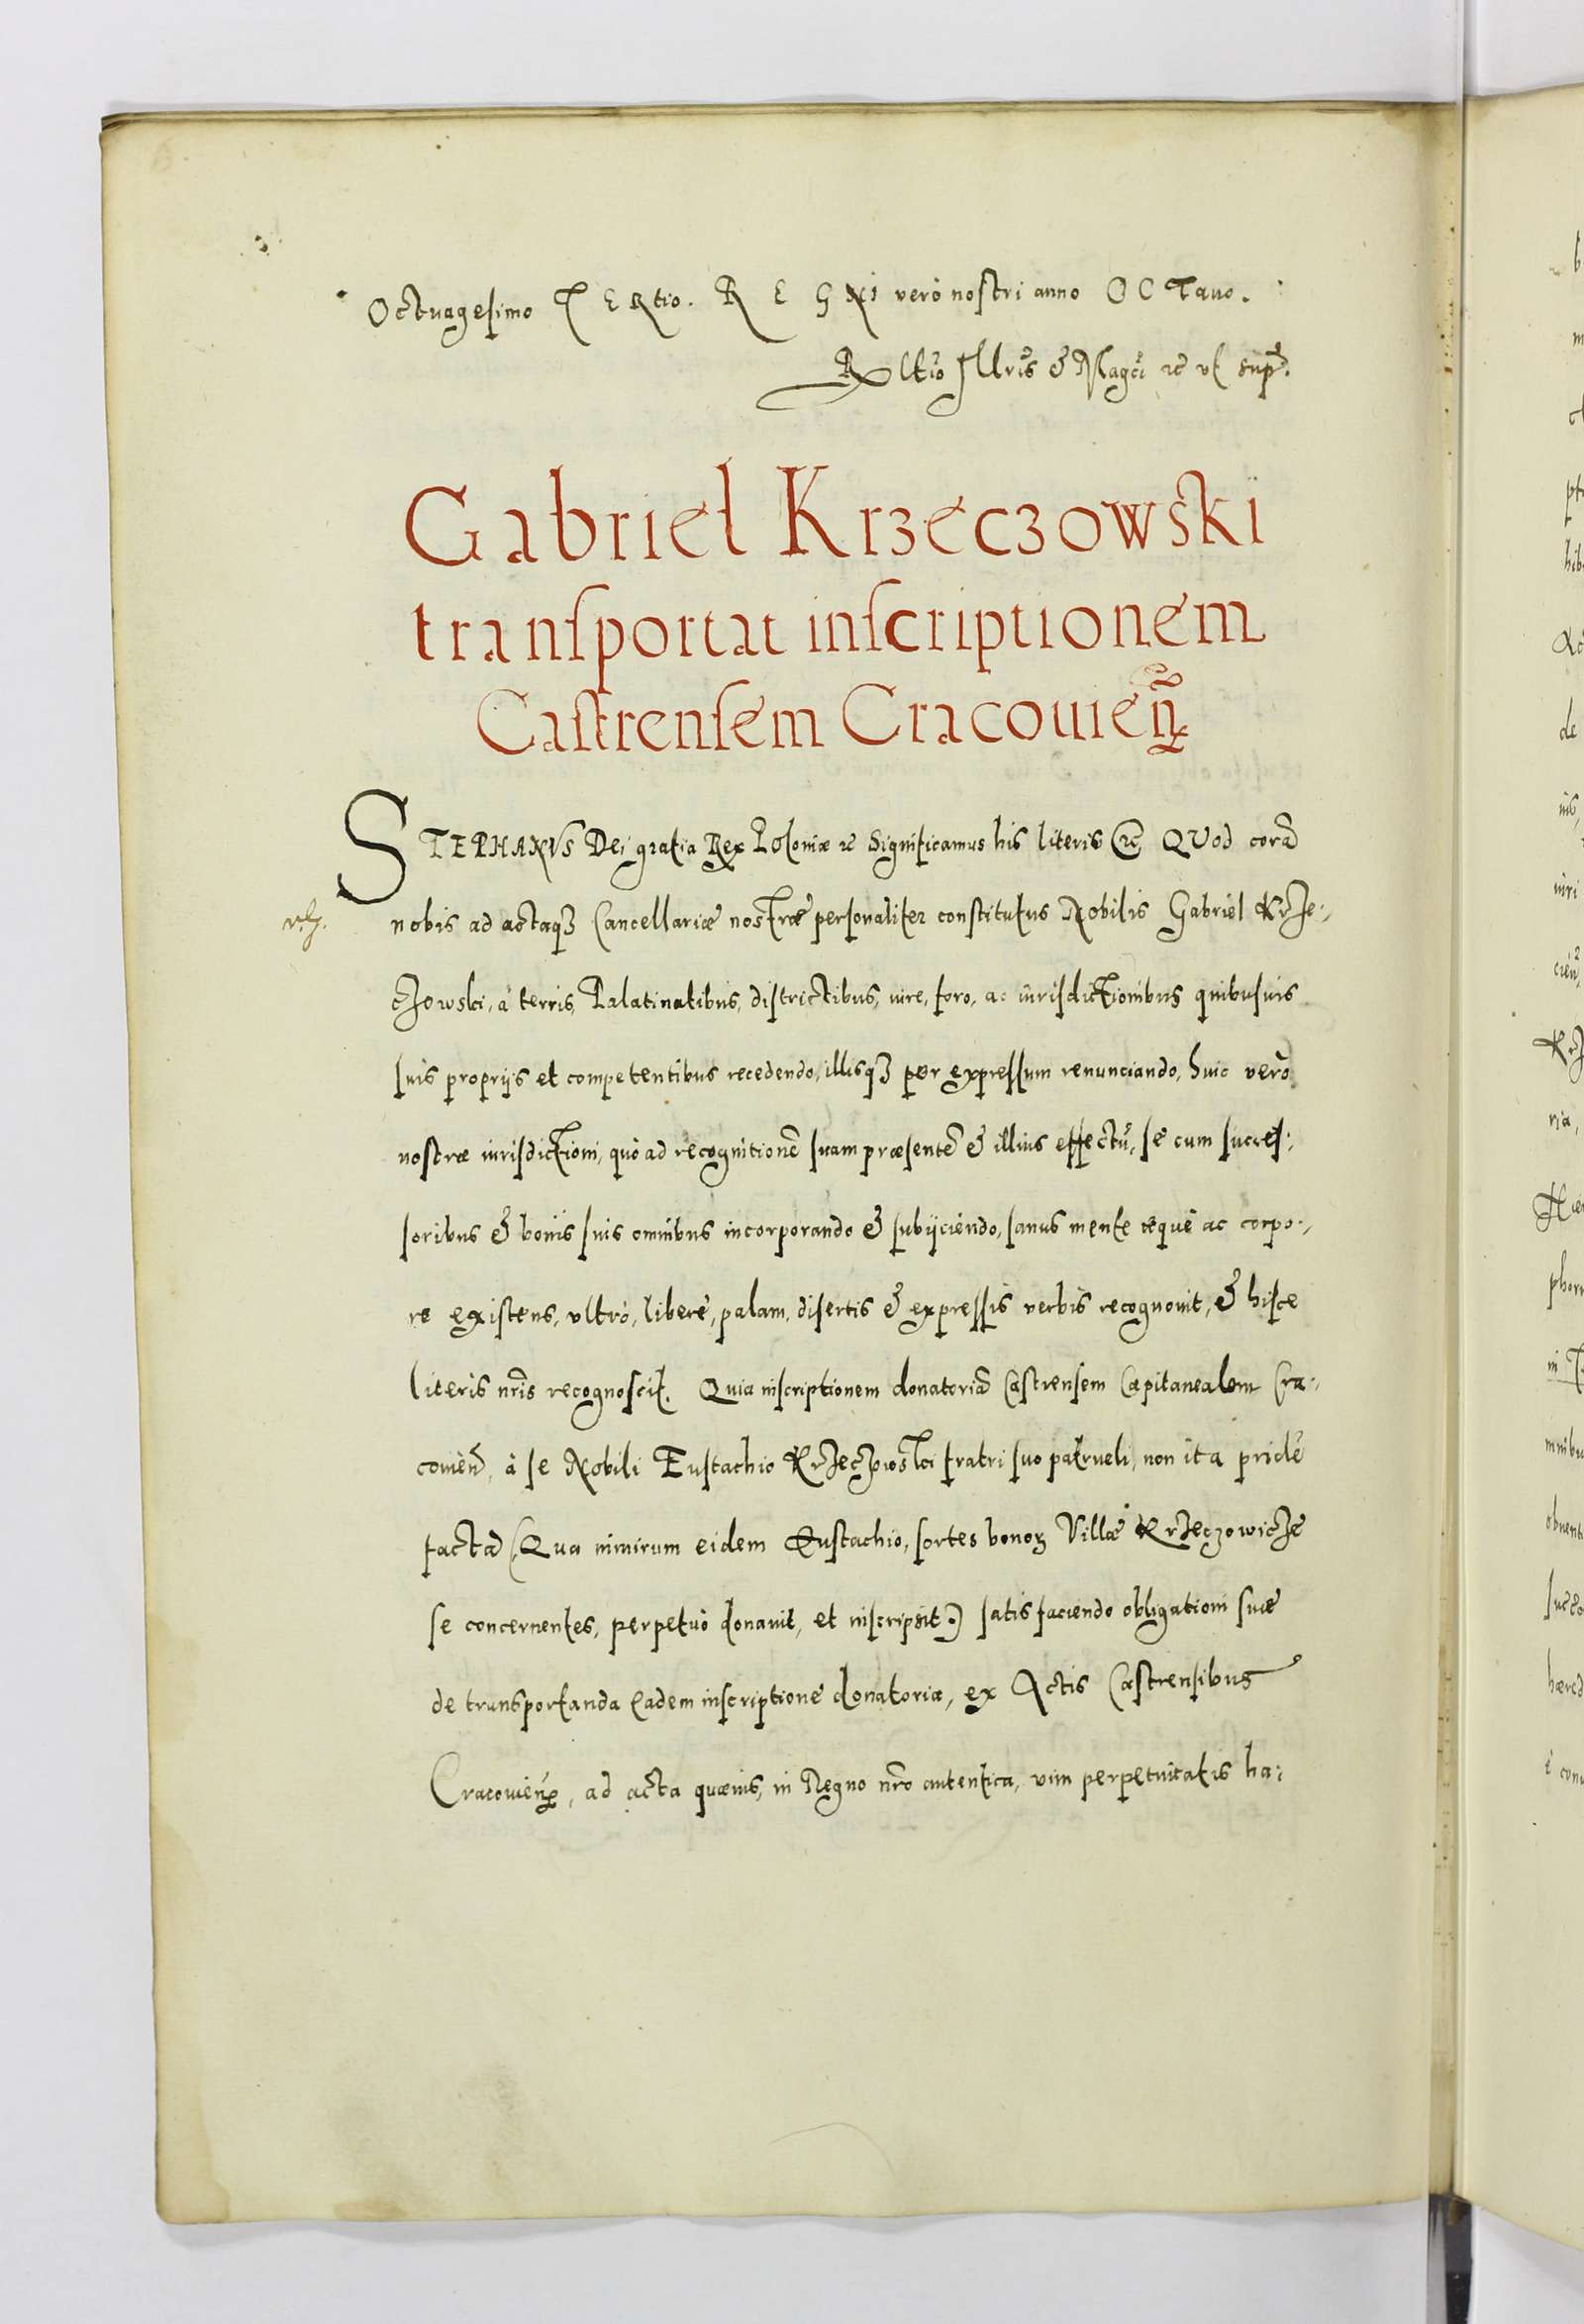 Octuagesimo TERtio. REGNi verò nostri anno OCTauo.
Rltio Illris & Magci &c vt supr.
Gabriel Krzeczowski
transportat inscriptionem
Castrensem Cracouien̄
STEPHANVS Dei gratia Rex Poloniæ &c Significamus his literis &c QVod corā
nobis ad actaqꝫ Cancellariæ nostræ personaliter constitutus Nobilis Gabriel Krze-
czowski, à terris, Palatinatibus, districtibus, iure, foro, ac iurisdictionibus quibusuis
suis proprijs et competentibus recedendo, illisqꝫ per expressum renunciando, huic verò
nostræ iurisdictioni, quò ad recognitionē suam præsentē & illius effectū, se cum succes-
soribus & bonis suis omnibus incorporando & subijciendo, sanus mente æquè ac corpo-
re existens, vltrò, liberè, palam, disertis & expressis verbis recognouit, & hisce
literis nr̄is recognoscit. Quia inscriptionem donatoriā Castrensem Capitanealem Cra-
couien̄, à se Nobili Eustachio Krzeczowski fratri suo patrueli, non ita pridē
factā (Qua nimirum eidem Eustachio, sortes bonoꝝ Villæ Krzeczowicze
se concernentes, perpetuò donauit, et inscripsit.) satis faciendo obligationi suæ
de transportanda eadem inscriptione donatoria, ex Actis Castrensibus
Cracouien̄, ad acta quæuis, in Regno nr̄o autentica, vim perpetuitatis ha-